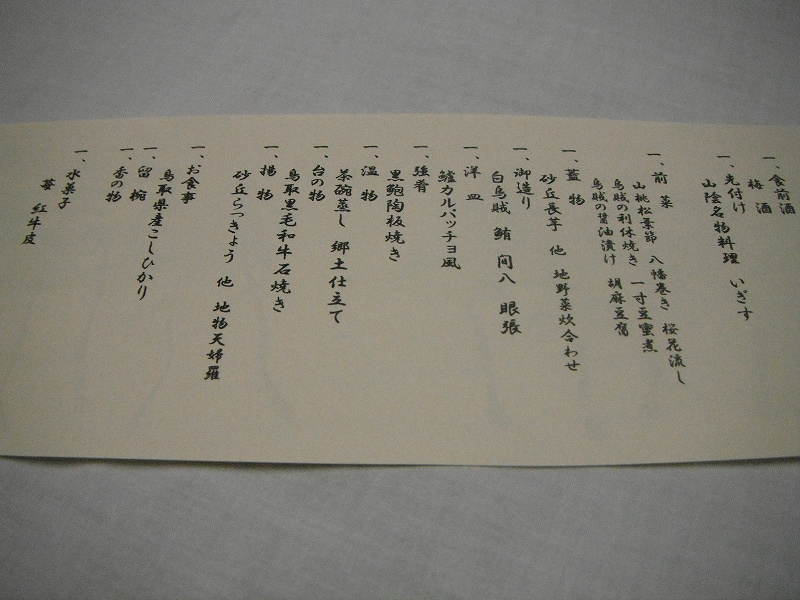 一、食前酒
梅酒
一、先付け
山陰名物料理 いぎす
一、前菜
山桃松葉節 八幡巻き 桜花流し
烏賊の利休焼き 一寸豆蜜煮
烏賊の醤油漬け 胡麻豆腐
一、蓋物
砂丘長芋 他 地野菜炊合わせ
一、御造り
白烏賊 鮪 間八 眼張
一、洋皿
鱸カルパッチョ風
一、強肴
黒鮑陶板焼き
一、温物
茶碗蒸し 郷土仕立て
一、台の物
鳥取黒毛和牛石焼き
一、揚物
砂丘らっきょう 他 地物天婦羅
一、お食事
鳥取県産こしひかり
一、留椀
一、香の物
一、水菓子
苺 紅牛皮